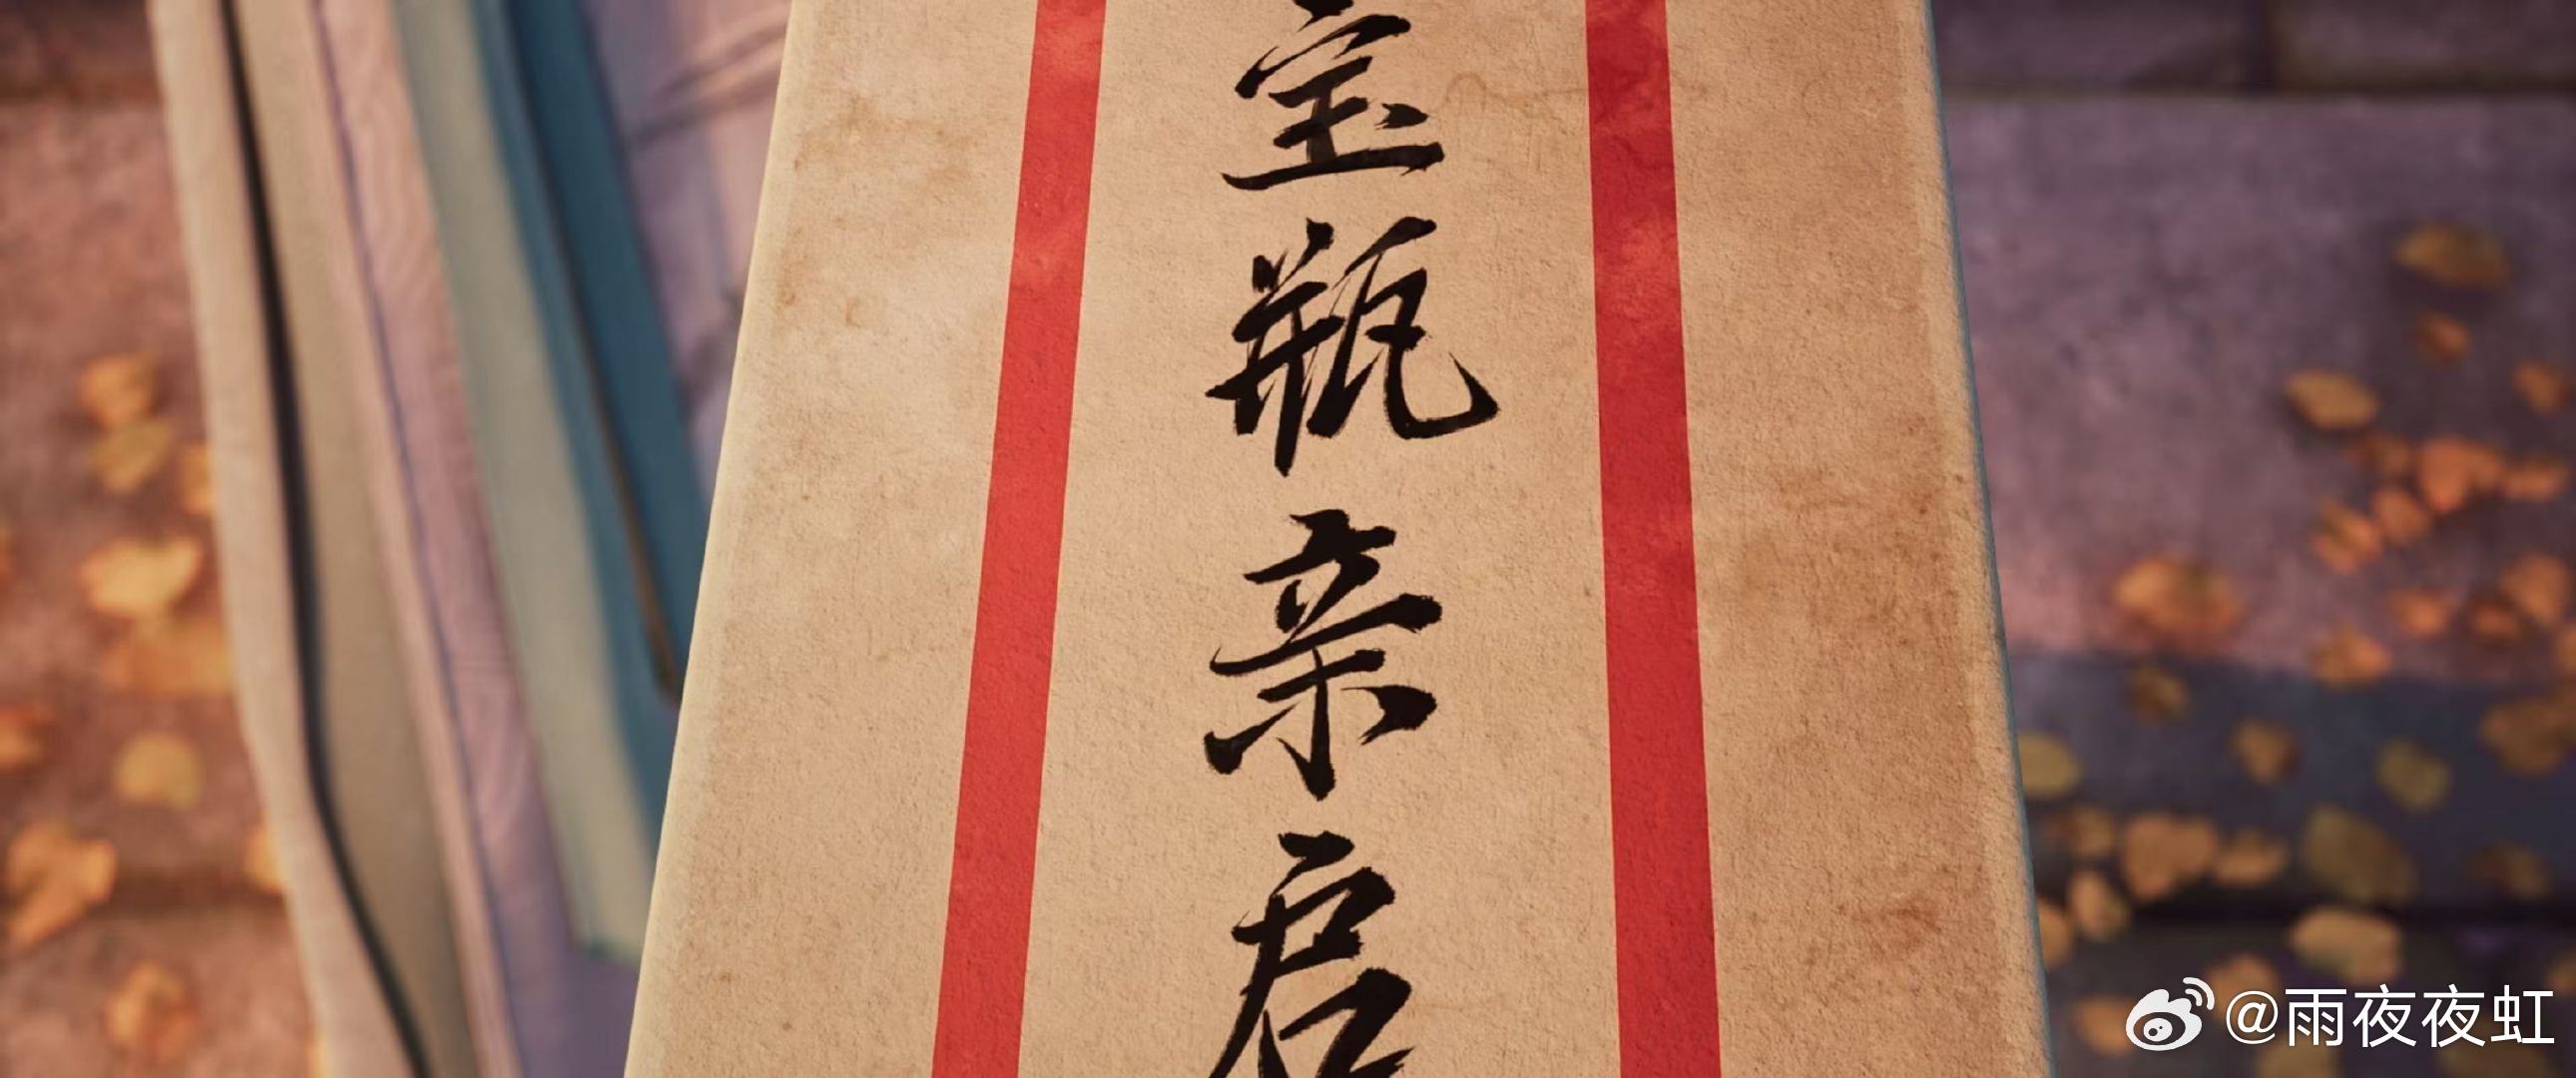 宝瓶亲启
@雨夜夜虹